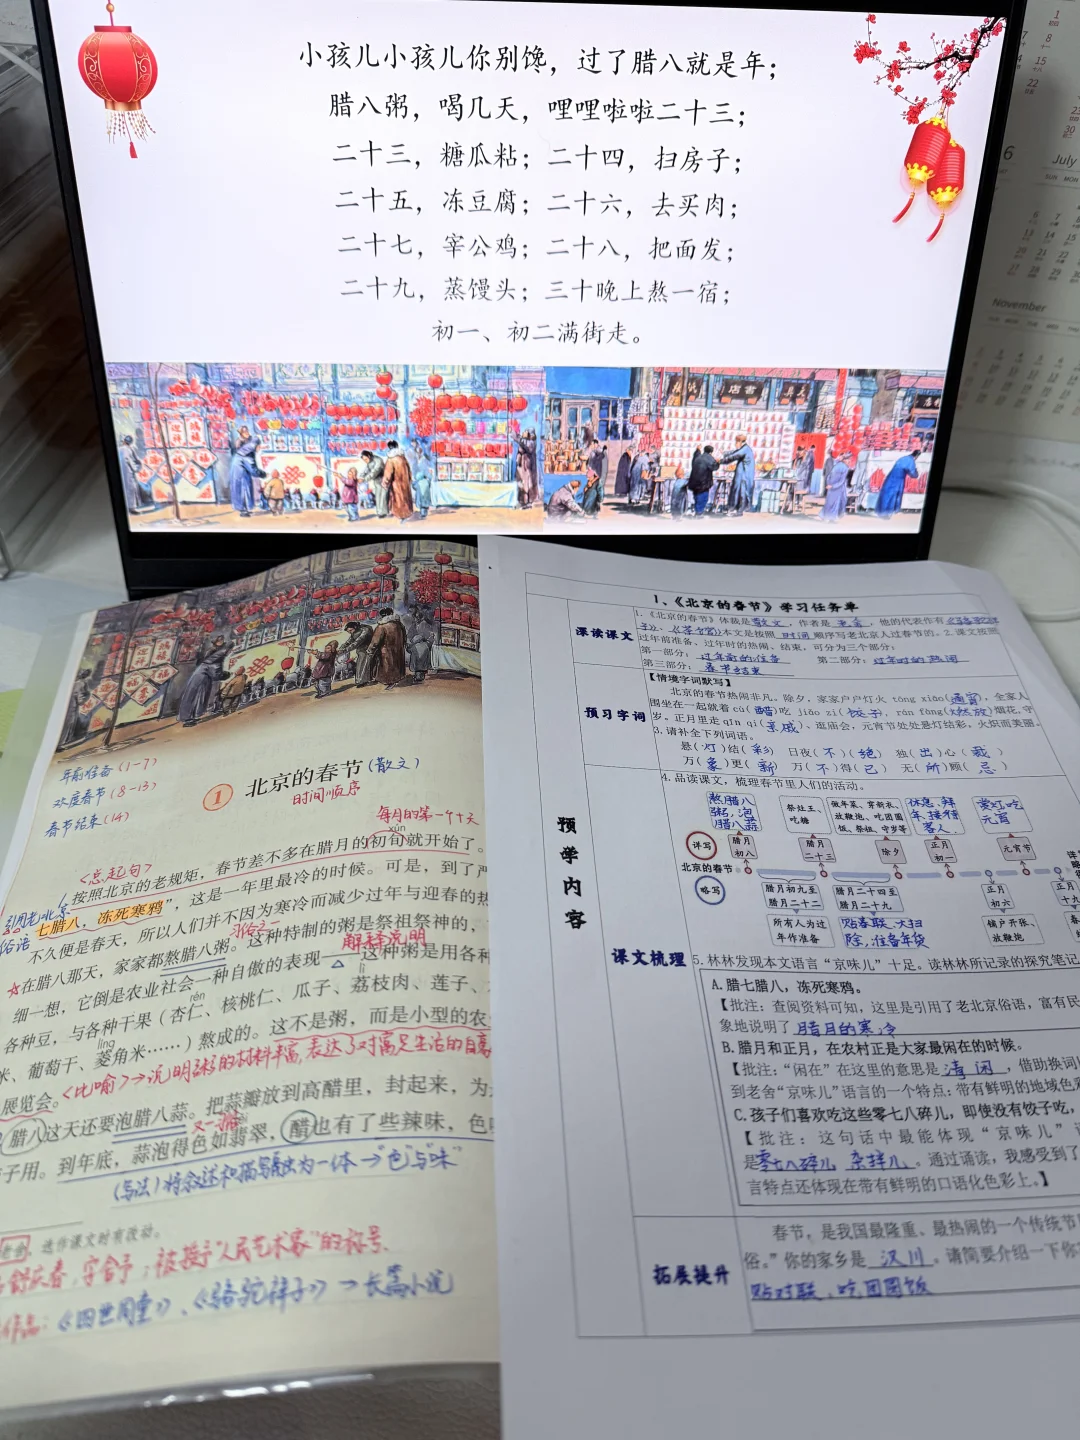 小孩儿小孩儿你别馋，过了腊八就是年；
腊八粥，喝几天，哩哩啦啦二十三；
二十三，糖瓜粘；二十四，扫房子；
二十五，冻豆腐；二十六，去买肉；
二十七，宰公鸡；二十八，把面发；
二十九，蒸馒头；三十晚上熬一宿；
初一、初二满街走。
July
November
年前准备(1-7)
欢度春节(8-13)
春节结束(14)
1 北京的春节(散文)
时间顺序
每月的第一个十天
<总起句>
xún
按照北京的老规矩，春节差不多在腊月的初旬就开始了。
引用老北京俗语
七腊八，冻死寒鸦”，这是一年里最冷的时候。可是，到了严
不久便是春天，所以人们并不因为寒冷而减少过年与迎春的热
解释说明
在腊八那天，家家都熬腊八粥。这种特制的粥是祭祖祭神的，
细一想，它倒是农业社会一种自傲的表现——这种粥是用各种
rén
lì
各种豆，与各种干果（杏仁、核桃仁、瓜子、荔枝肉、莲子、
líng
米、葡萄干、菱角米……）熬成的。这不是粥，而是小型的农
展览会。<比喻>→说明粥的材料丰富，表达了对富足生活的自豪
腊八这天还要泡腊八蒜。把蒜瓣放到高醋里，封起来，为
子用。到年底，蒜泡得色如翡翠，醋也有了些辣味，色
(写法)将叙述和描写融为一体→“色”与“味”
，选作课文时有改动。
舒庆春，字舍予；被授予“人民艺术家”的称号.
作品：《四世同堂》、《骆驼祥子》→长篇小说
1、《北京的春节》学习任务单
深读课文
1.《北京的春节》体裁是散文，作者是老舍，他的代表作有《骆驼祥
子》、《茶馆》本文是按照 时间 顺序写老北京人过春节的。2.课文按照
过年前准备、过年时的热闹、结束，可分为三个部分：
第一部分：过年前的准备 第二部分：过年时的热闹
第三部分：春节结束
预习字词
【情境字词默写】
北京的春节热闹非凡。除夕，家家户户灯火 tōng xiāo(通宵)，全家人
围坐在一起就着 cù(醋)吃 jiǎo zi(饺子)，rán fàng(燃放)烟花，守
岁。正月里走 qīn qi(亲戚)、逛庙会，元宵节处处悬灯结彩，火炽而美丽。
3.请补全下列词语。
悬(灯)结(彩) 日夜(不)(绝) 独(出)心(裁)
万(象)更(新) 万(不)得(已) 无(所)顾(忌)
预学内容
课文梳理
4.品读课文，梳理春节里人们的活动。
熬腊八粥，泡腊八蒜
祭灶王、吃糖
做年菜、穿新衣、放鞭炮、吃团圆饭、祭祖、守岁等
休息、拜年、接待客人.
赏灯吃元宵
详写
腊月初八
腊月二十三
除夕
正月初一
元宵节
北京的春节
略写
腊月初九至腊月二十二
腊月二十四至腊月二十九
正月初六
正月十九
所有人为过年作准备
贴春联、大扫除，准备年货
铺户开张、放鞭炮
5.林林发现本文语言“京味儿”十足。读林林所记录的探究笔记
A.腊七腊八，冻死寒鸦。
【批注：查阅资料可知，这里是引用了老北京俗语，富有民
象地说明了 腊月的寒冷
B.腊月和正月，在农村正是大家最闲在的时候。
【批注：“闲在”在这里的意思是 清闲 ，借助换词
到老舍“京味儿”语言的一个特点：带有鲜明的地域色彩
C.孩子们喜欢吃这些零七八碎儿，即使没有饺子吃，
【批注：这句话中最能体现“京味儿”
是零七八碎儿 杂拌儿。通过诵读，我感受到了
言特点还体现在带有鲜明的口语化色彩上。】
拓展提升
春节，是我国最隆重、最热闹的一个传统节
俗。”你的家乡是 汉川 。请简要介绍一下你
贴对联、吃团圆饭